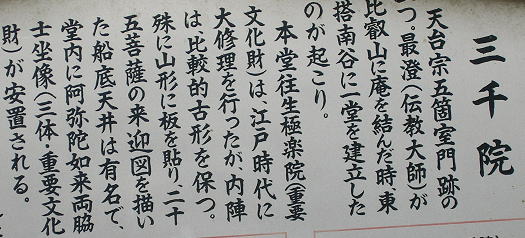 三千院
天台宗五箇室門跡の
一つ。最澄(伝教大師)が
比叡山に庵を結んだ時、東
塔南谷に一堂を建立した
のが起こり。
本堂・往生極楽院(重要
文化財)は、江戸時代に
大修理を行ったが、内陣
は比較的古形を保つ。
殊に山形に板を貼り、二十
五菩薩の来迎図を描い
た船底天井は有名で、
堂内に阿弥陀如来両脇
士坐像(三体・重要文化
財)が安置される。